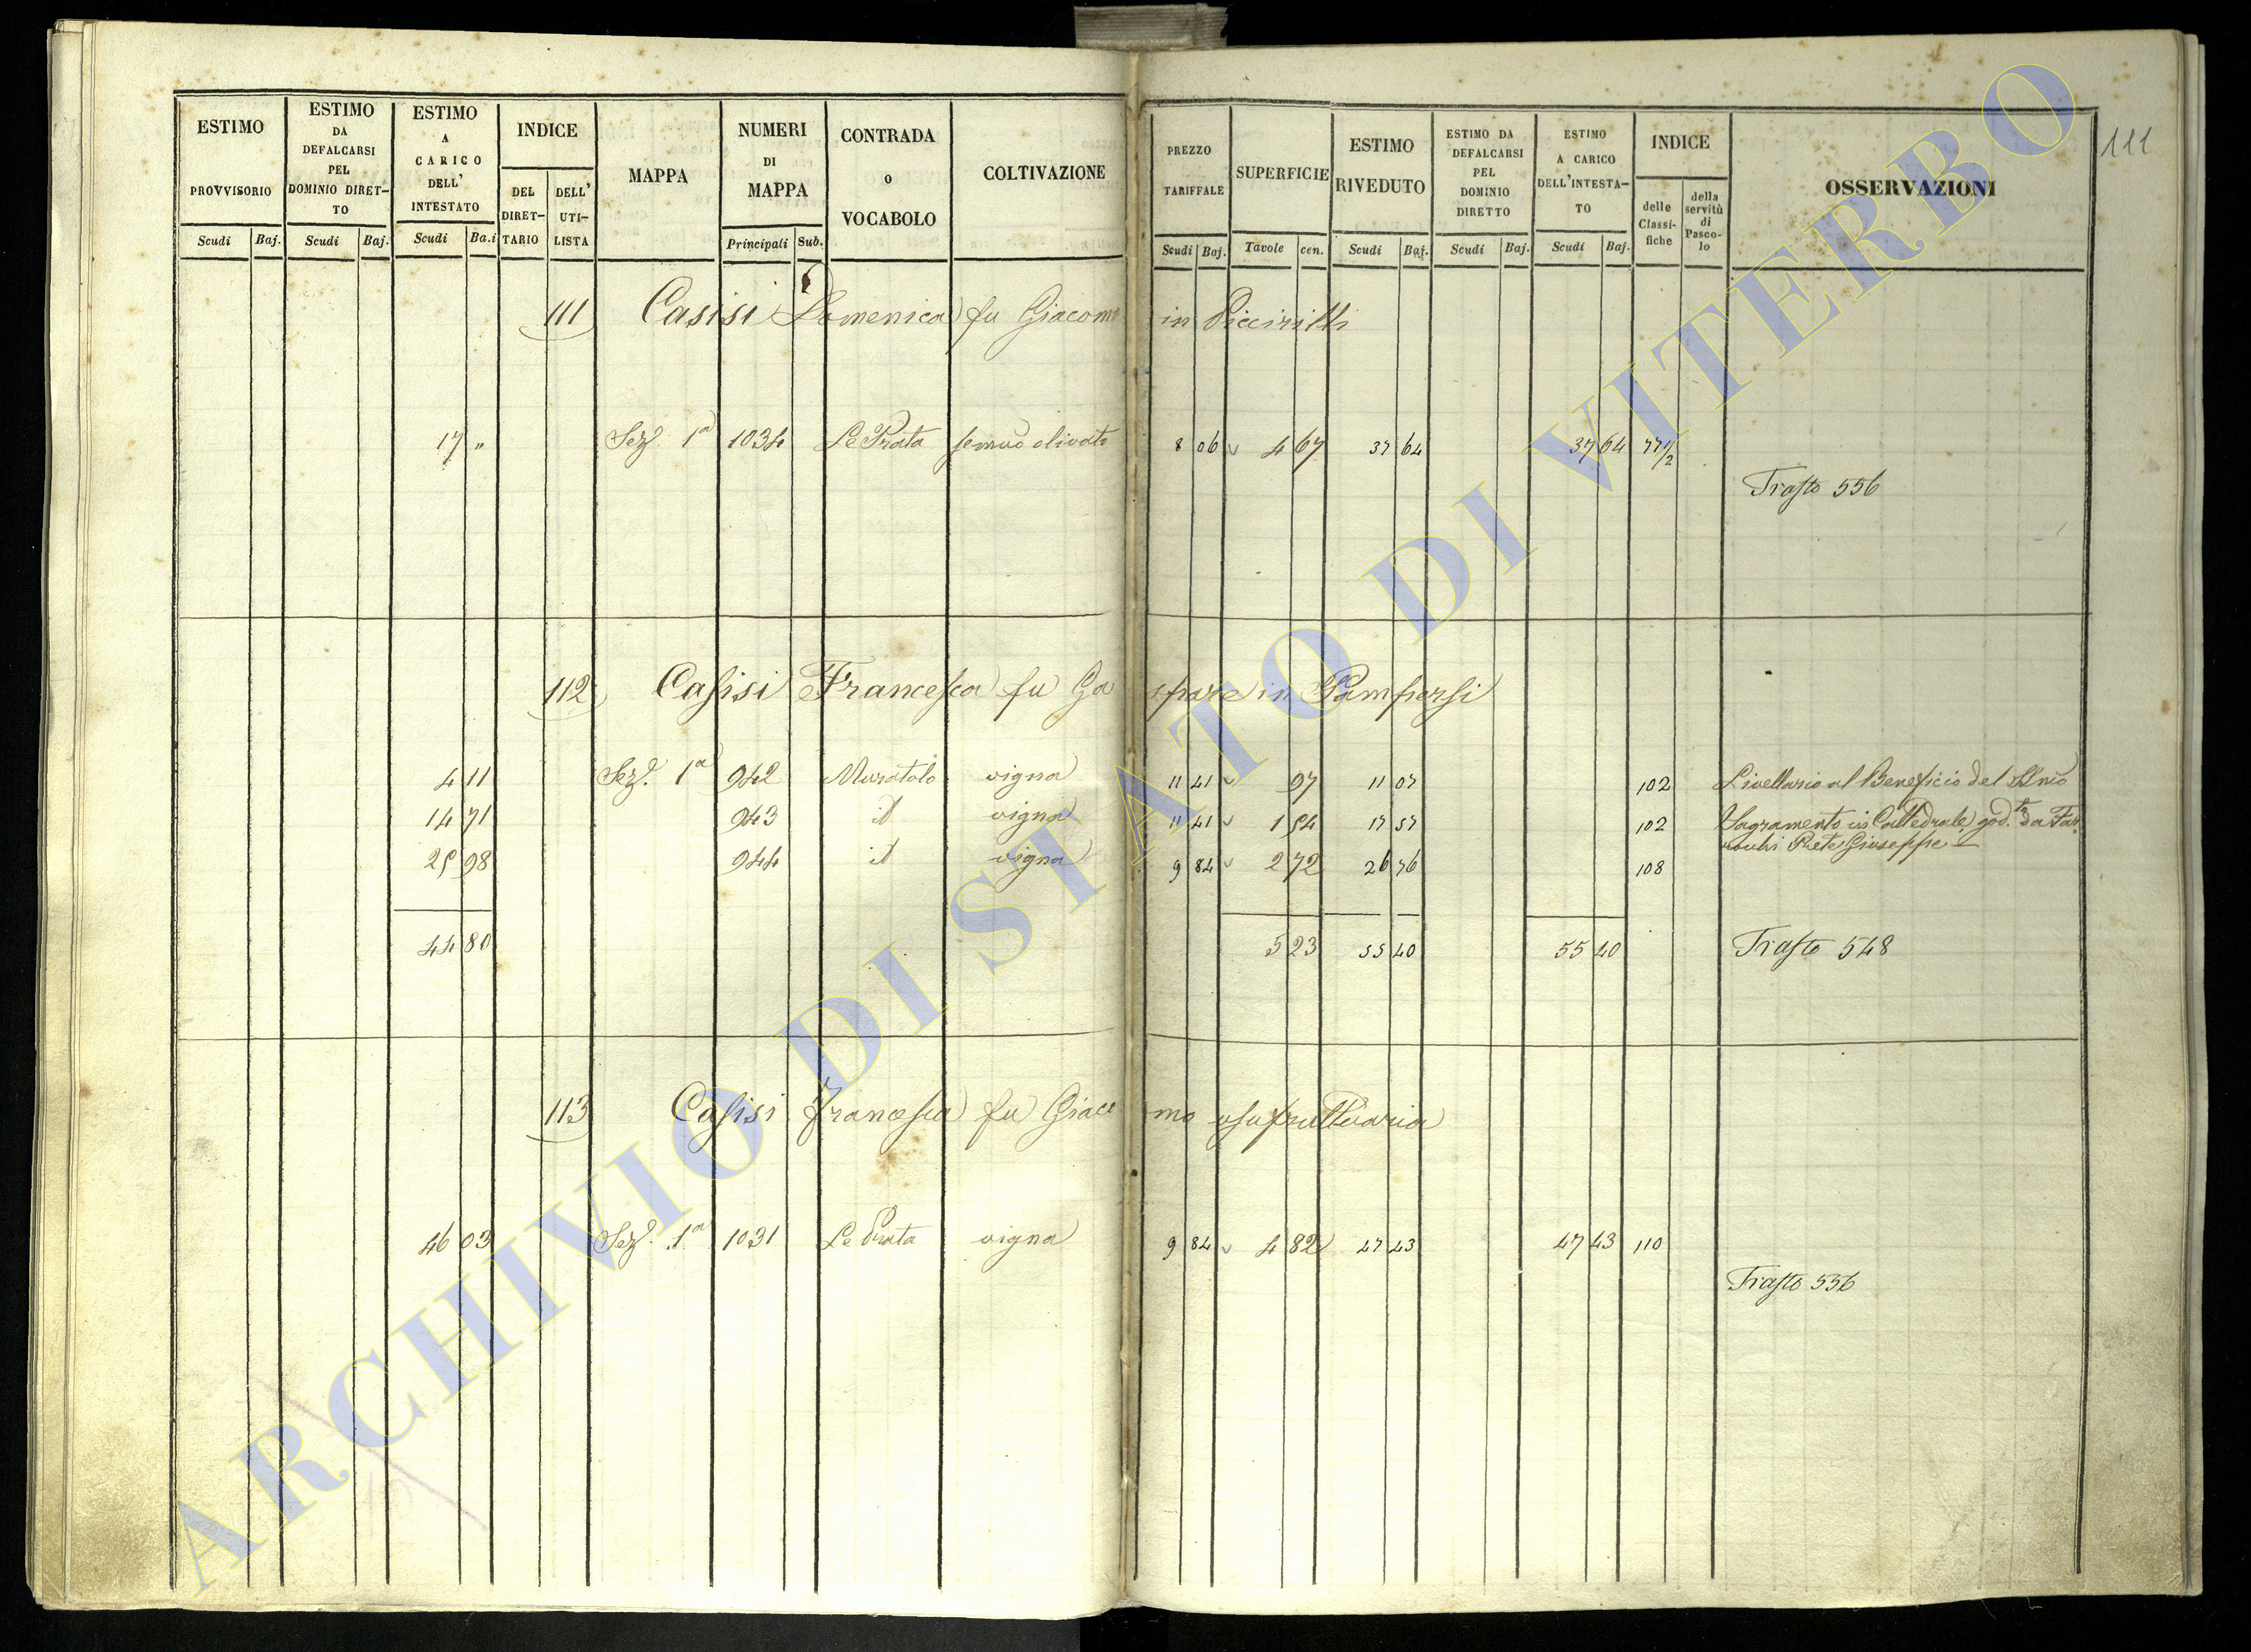 111
ESTIMO PROVVISORIO
ESTIMO DA DEFALCARSI PEL DOMINIO DIRET-TO
ESTIMO A CARICO DELL' INTESTATO
INDICE
DEL DIRET-TARIO
DELL' UTI-LISTA
MAPPA
NUMERI DI MAPPA
CONTRADA o VOCABOLO
COLTIVAZIONE
PREZZO TARIFFALE
SUPERFICIE
ESTIMO RIVEDUTO
ESTIMO DA DEFALCARSI PEL DOMINIO DIRETTO
ESTIMO A CARICO DELL'INTESTA-TO
INDICE
delle Classi-fiche
della servitù di Pasco-lo
OSSERVAZIONI
Scudi Baj. Scudi Baj. Scudi Ba.i Principali Sub. Scudi Baj. Tavole cen. Scudi Baj. Scudi Baj. Scudi Baj.
111 Casisi Domenica fu Giacomo in Piccirilli
17 " Sez. 1a 1034 Le Prata semvo olivato 8 06 4 67 37 64 37 64 77 1/2
Trasto 556
112 Casisi Francesca fu Gaspare in Pampersi
4 11 Sez. 1a 942 Muratolo vigna 11 41 97 11 07 102 Livellario al Beneficio del SSmo
14 71 943 id vigna 11 41 1 54 17 57 102 Sagramento in Cattedrale god. da
25 98 944 id vigna 9 84 2 72 26 76 108 Prete Giuseppe
44 80 5 23 55 40 55 40 Trasto 548
113 Casisi Francesca fu Giacomo usufruttuaria
46 03 Sez. 1a 1031 Le Prata vigna 9 84 4 82 47 43 47 43 110
Trasto 556
ARCHIVIO DI STATO DI VITERBO